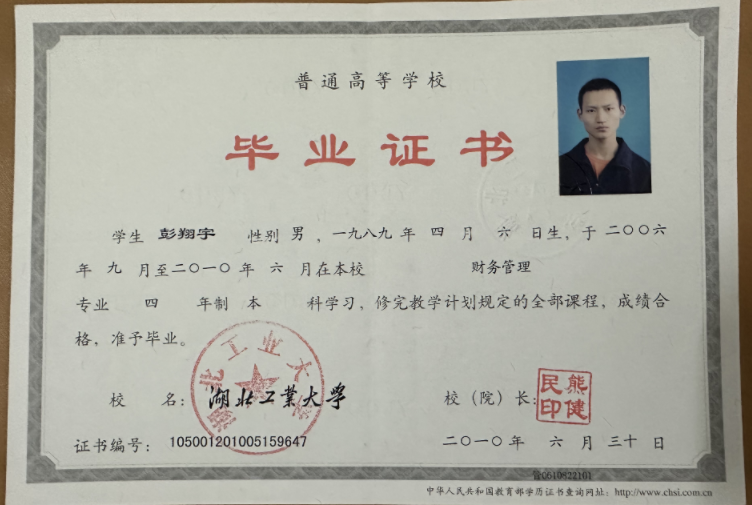 普通高等学校
毕业证书
学生 彭翔宇 性别 男 ，一九八九 年 四 月 六 日生，于 二〇〇六
年 九 月至二〇一〇 年 六 月在本校 财务管理
专业 四 年制 本 科学习，修完教学计划规定的全部课程，成绩合
格，准予毕业。
湖北工业大学
校 名： 湖北工業大学
校（院）长： 熊健民印
证书编号： 105001201005159647
二〇一〇 年 六 月 三十 日
中华人民共和国教育部学历证书查询网址：http://www.chsi.com.cn